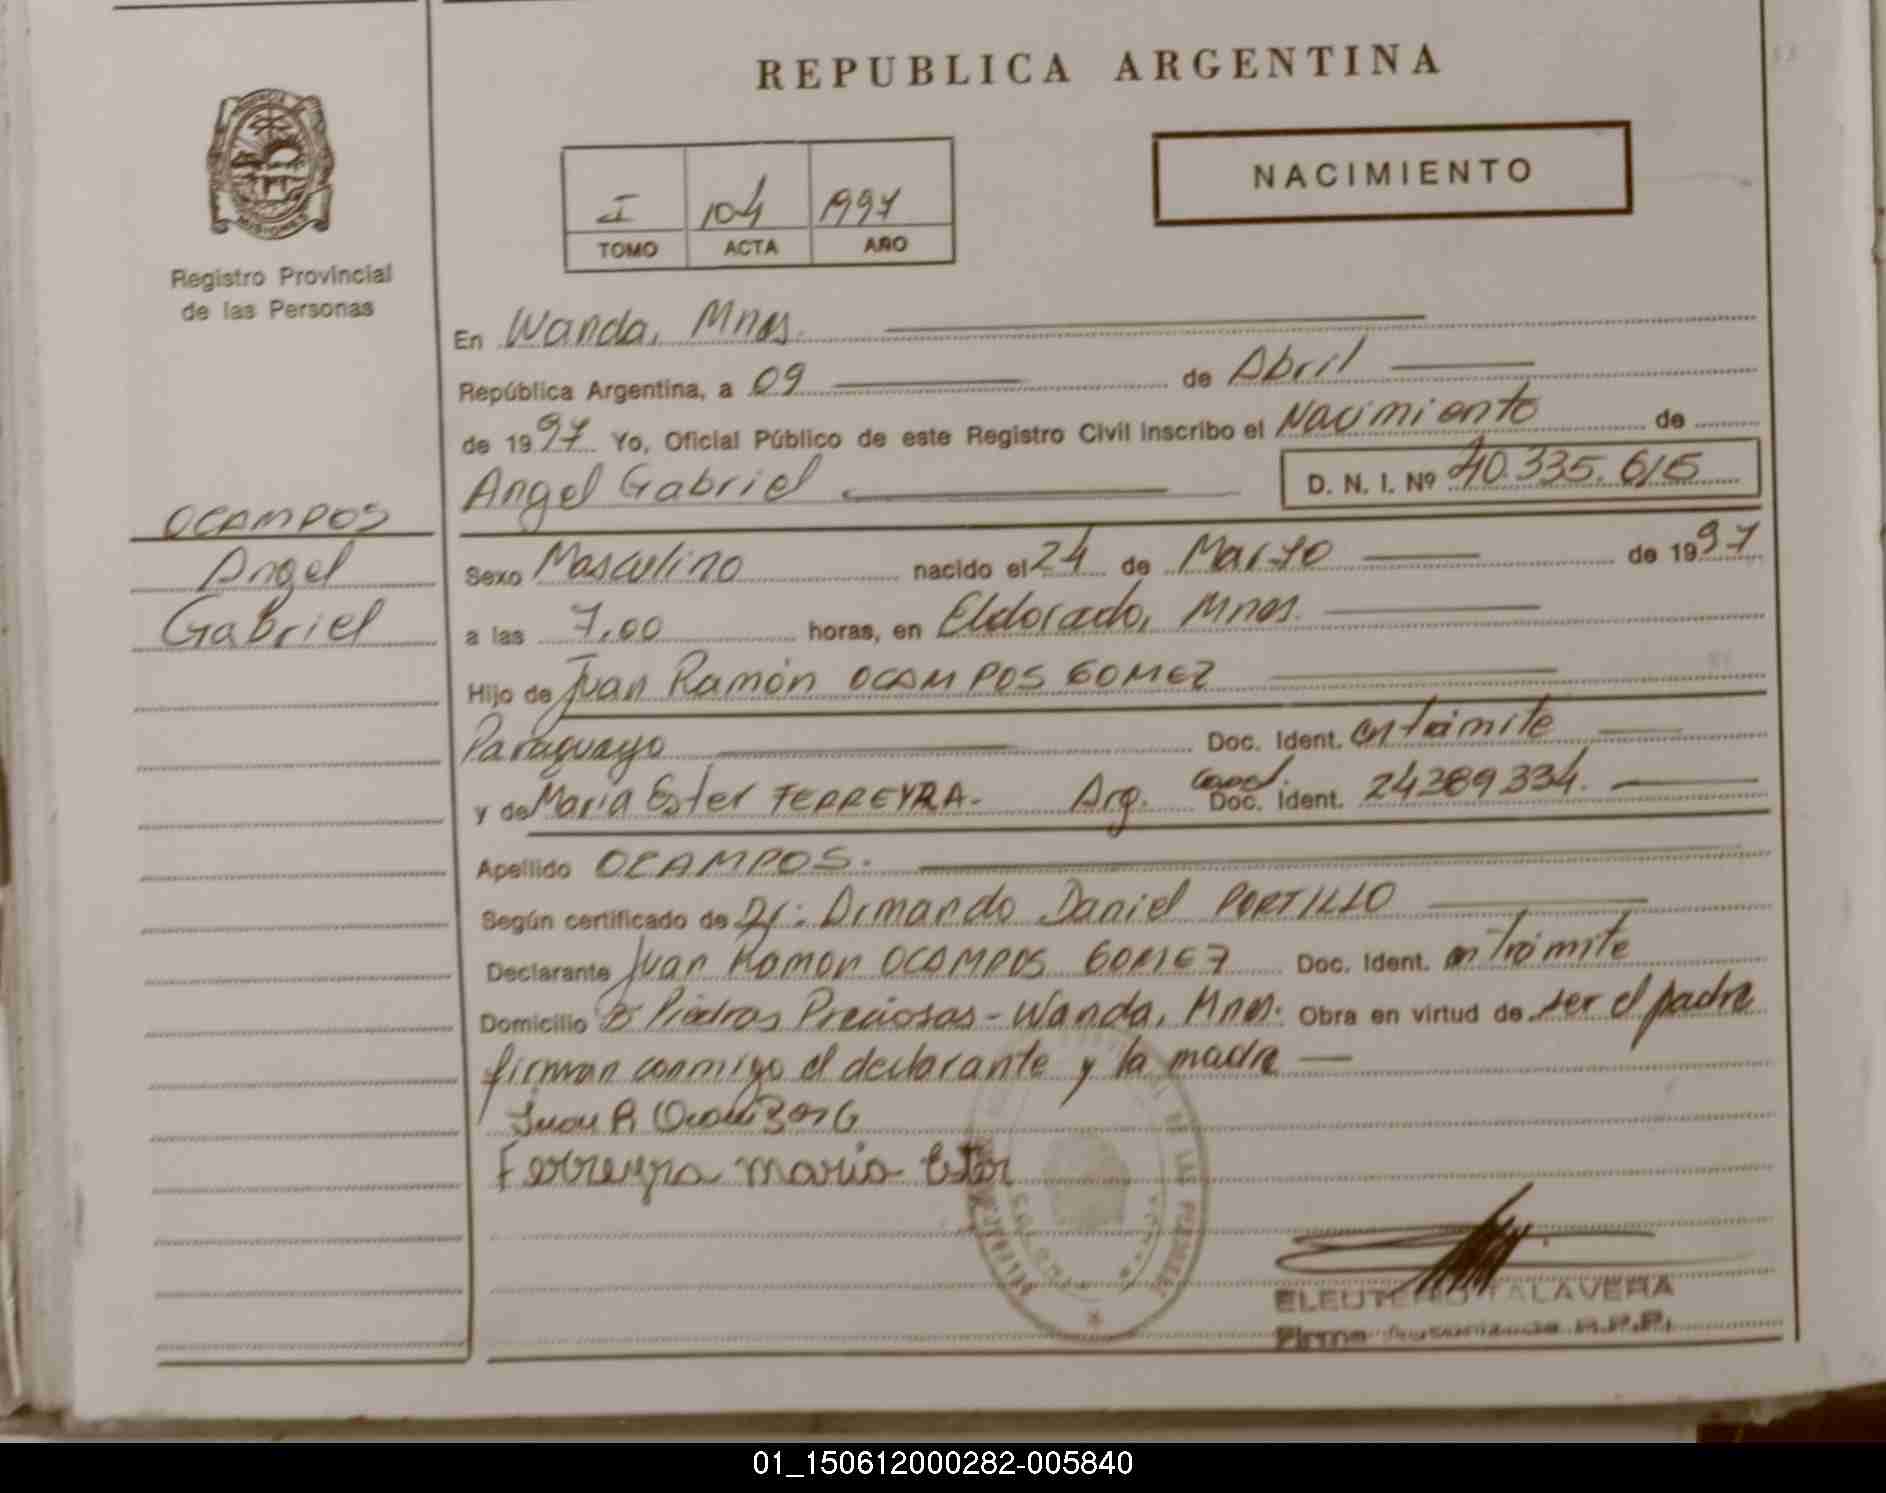 REPUBLICA ARGENTINA
NACIMIENTO
I 104 1997
TOMO ACTA AÑO
MISIONES
Registro Provincial
de las Personas
En Wanda, Mnes.
República Argentina, a 09 de Abril
de 1997 Yo, Oficial Público de este Registro Civil inscribo el Nacimiento de
Angel Gabriel D. N. I. Nº 40.335.615
OCAMPOS
Angel
Gabriel
Sexo Masculino nacido el 24 de Marzo de 1997
a las 7,00 horas, en Eldorado, Mnes.
Hijo de Juan Ramón OCAMPOS GOMEZ
Paraguayo Doc. Ident. en trámite
y de María Ester FERREYRA- Arg. Doc. Ident. 24389334.
Apellido OCAMPOS.
Según certificado de Dr: Armando Daniel PORTILLO
Declarante Juan Ramon OCAMPOS GOMEZ Doc. Ident. en trámite
Domicilio Bº Piedras Preciosas - Wanda, Mnes. Obra en virtud de ser el padre
firman conmigo el declarante y la madre
Juan R
Ferreyra maria Ester
DE LAS PERSONAS
ELEUTERIO TALAVERA
Firma Autorizada R.P.P.
01_150612000282-005840